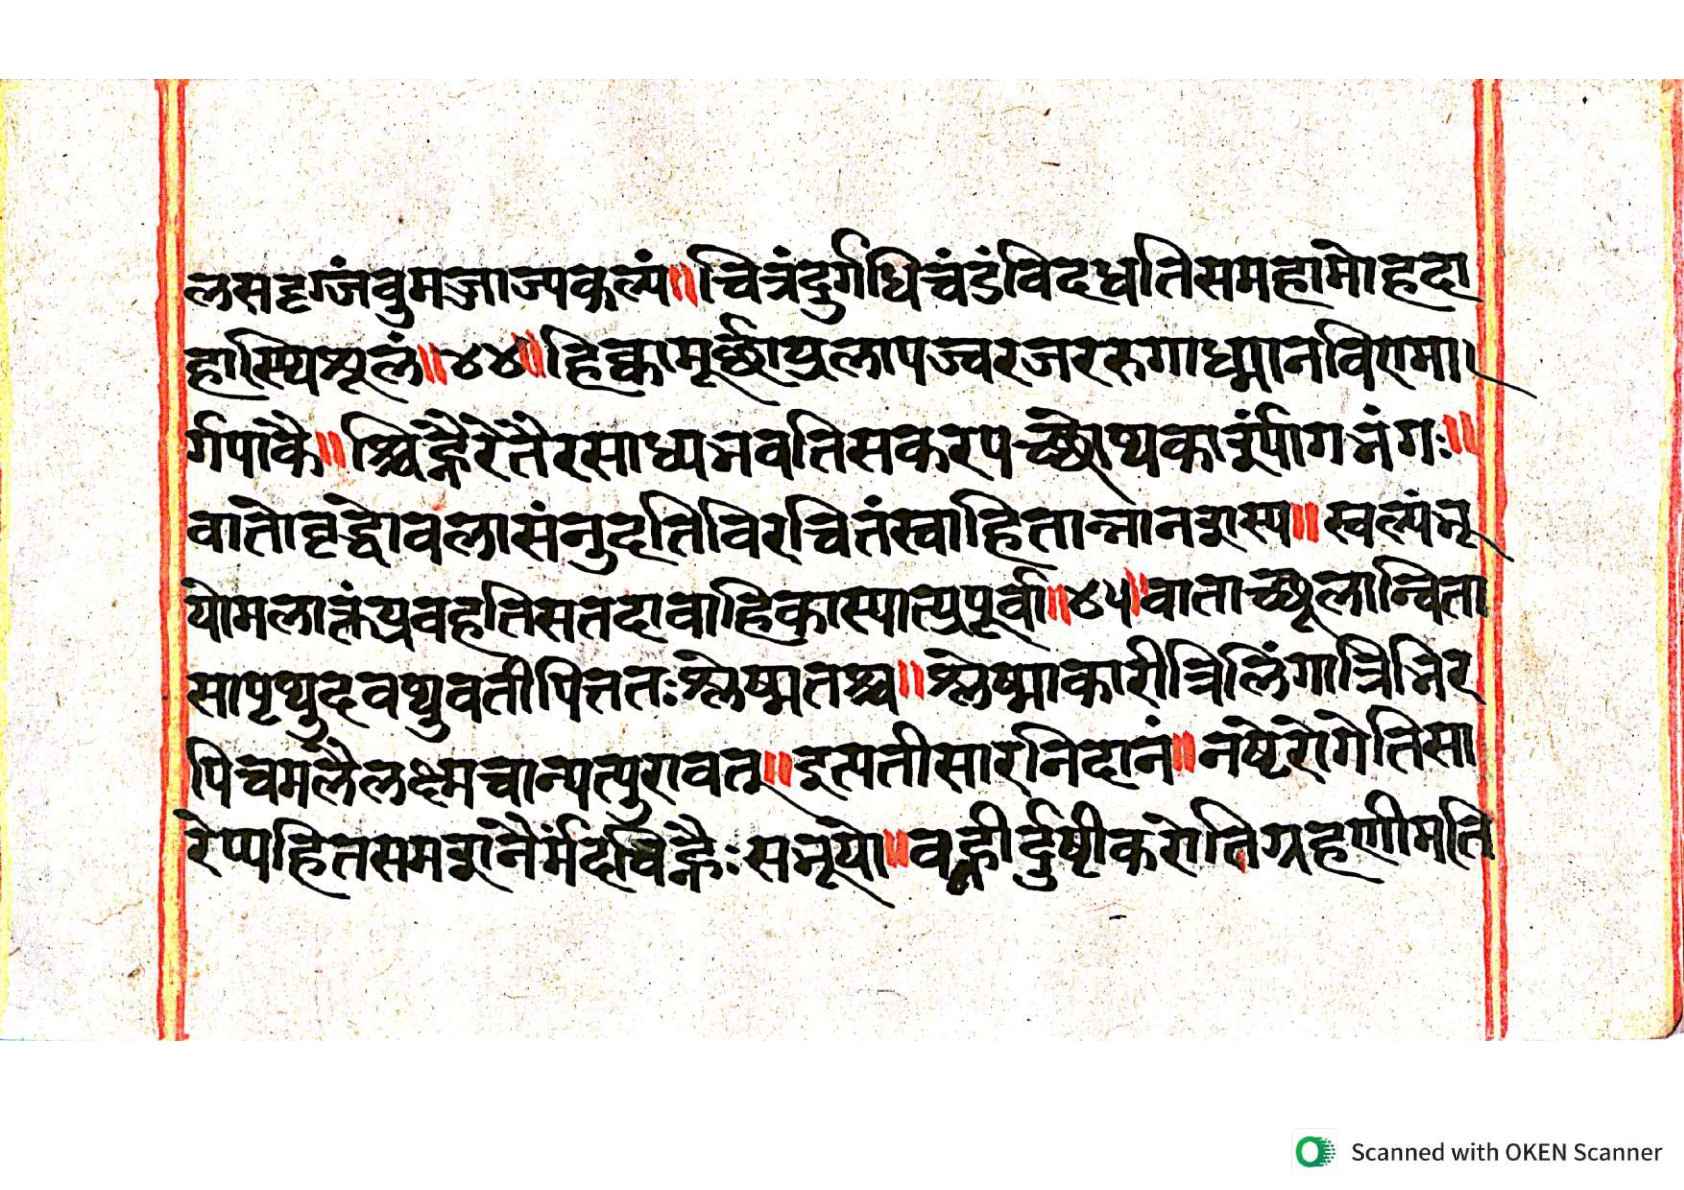 लसदृग्जंवुमज्जाज्यकल्पं॥चित्रंदुर्गंधिचंडंविदधतिसमहामोहदा
हास्थिशूलं॥४४॥हिक्कामूर्छाप्रलापज्वरजररुगाध्मानविएमा।
र्गपाकै॥श्चिह्नैरेतैरसाध्यभवतिसकरपच्छोथकार्
वातोवृद्धोवलासंनुदतिविरचितंस्वाहितान्नानशस्य॥स्वल्पंभू
योमलात्कंप्रवहतिसतदावाहिकास्यात्प्रपूर्वा॥४५॥वाताच्छूलान्विता
सापृथुदवथुवतीपित्ततःश्लेष्मतश्च॥श्लेष्माकारीत्रिलिंगात्रिभिर
पिचमलैर्लक्ष्मचान्यत्पुरावत्॥इत्यतीसारनिदानं॥नष्टेरोगेतिसा
रेप्यहितसमशनैर्मंदवह्नैःसभूयो॥वह्नीर्दुष्टीकरोतिग्रहणीमति
Scanned with OKEN Scanner